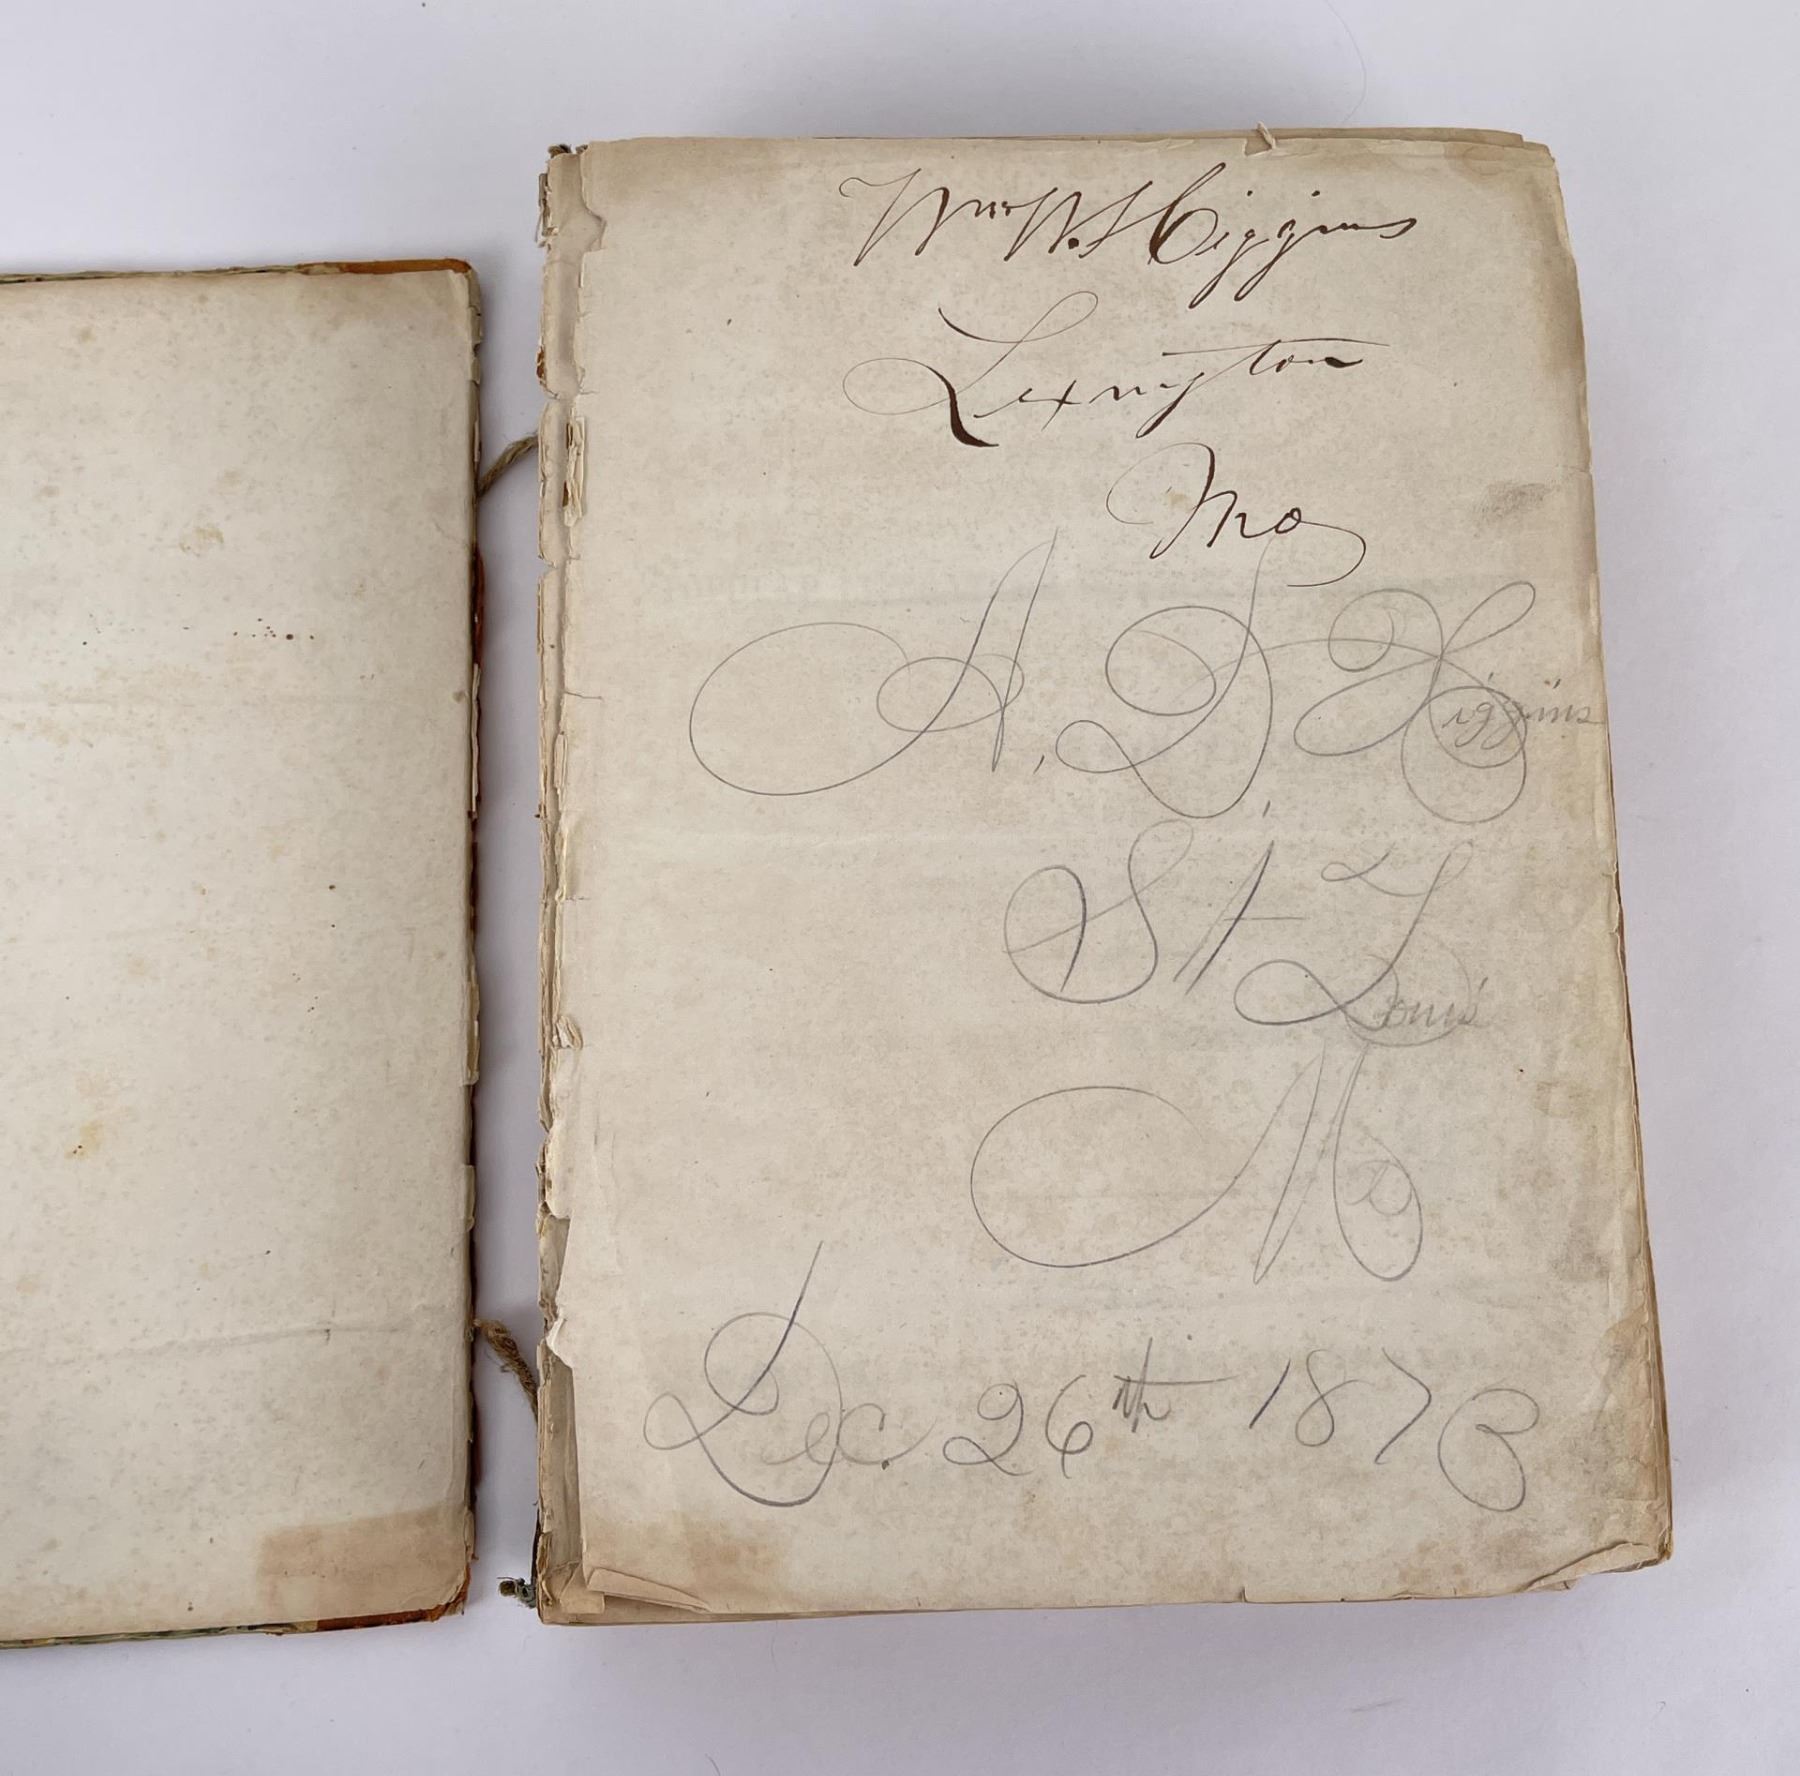 Wm W. Higgins
Lexington
Mo
A. D. Higgins
St Louis
Mo
Dec. 26th 1873